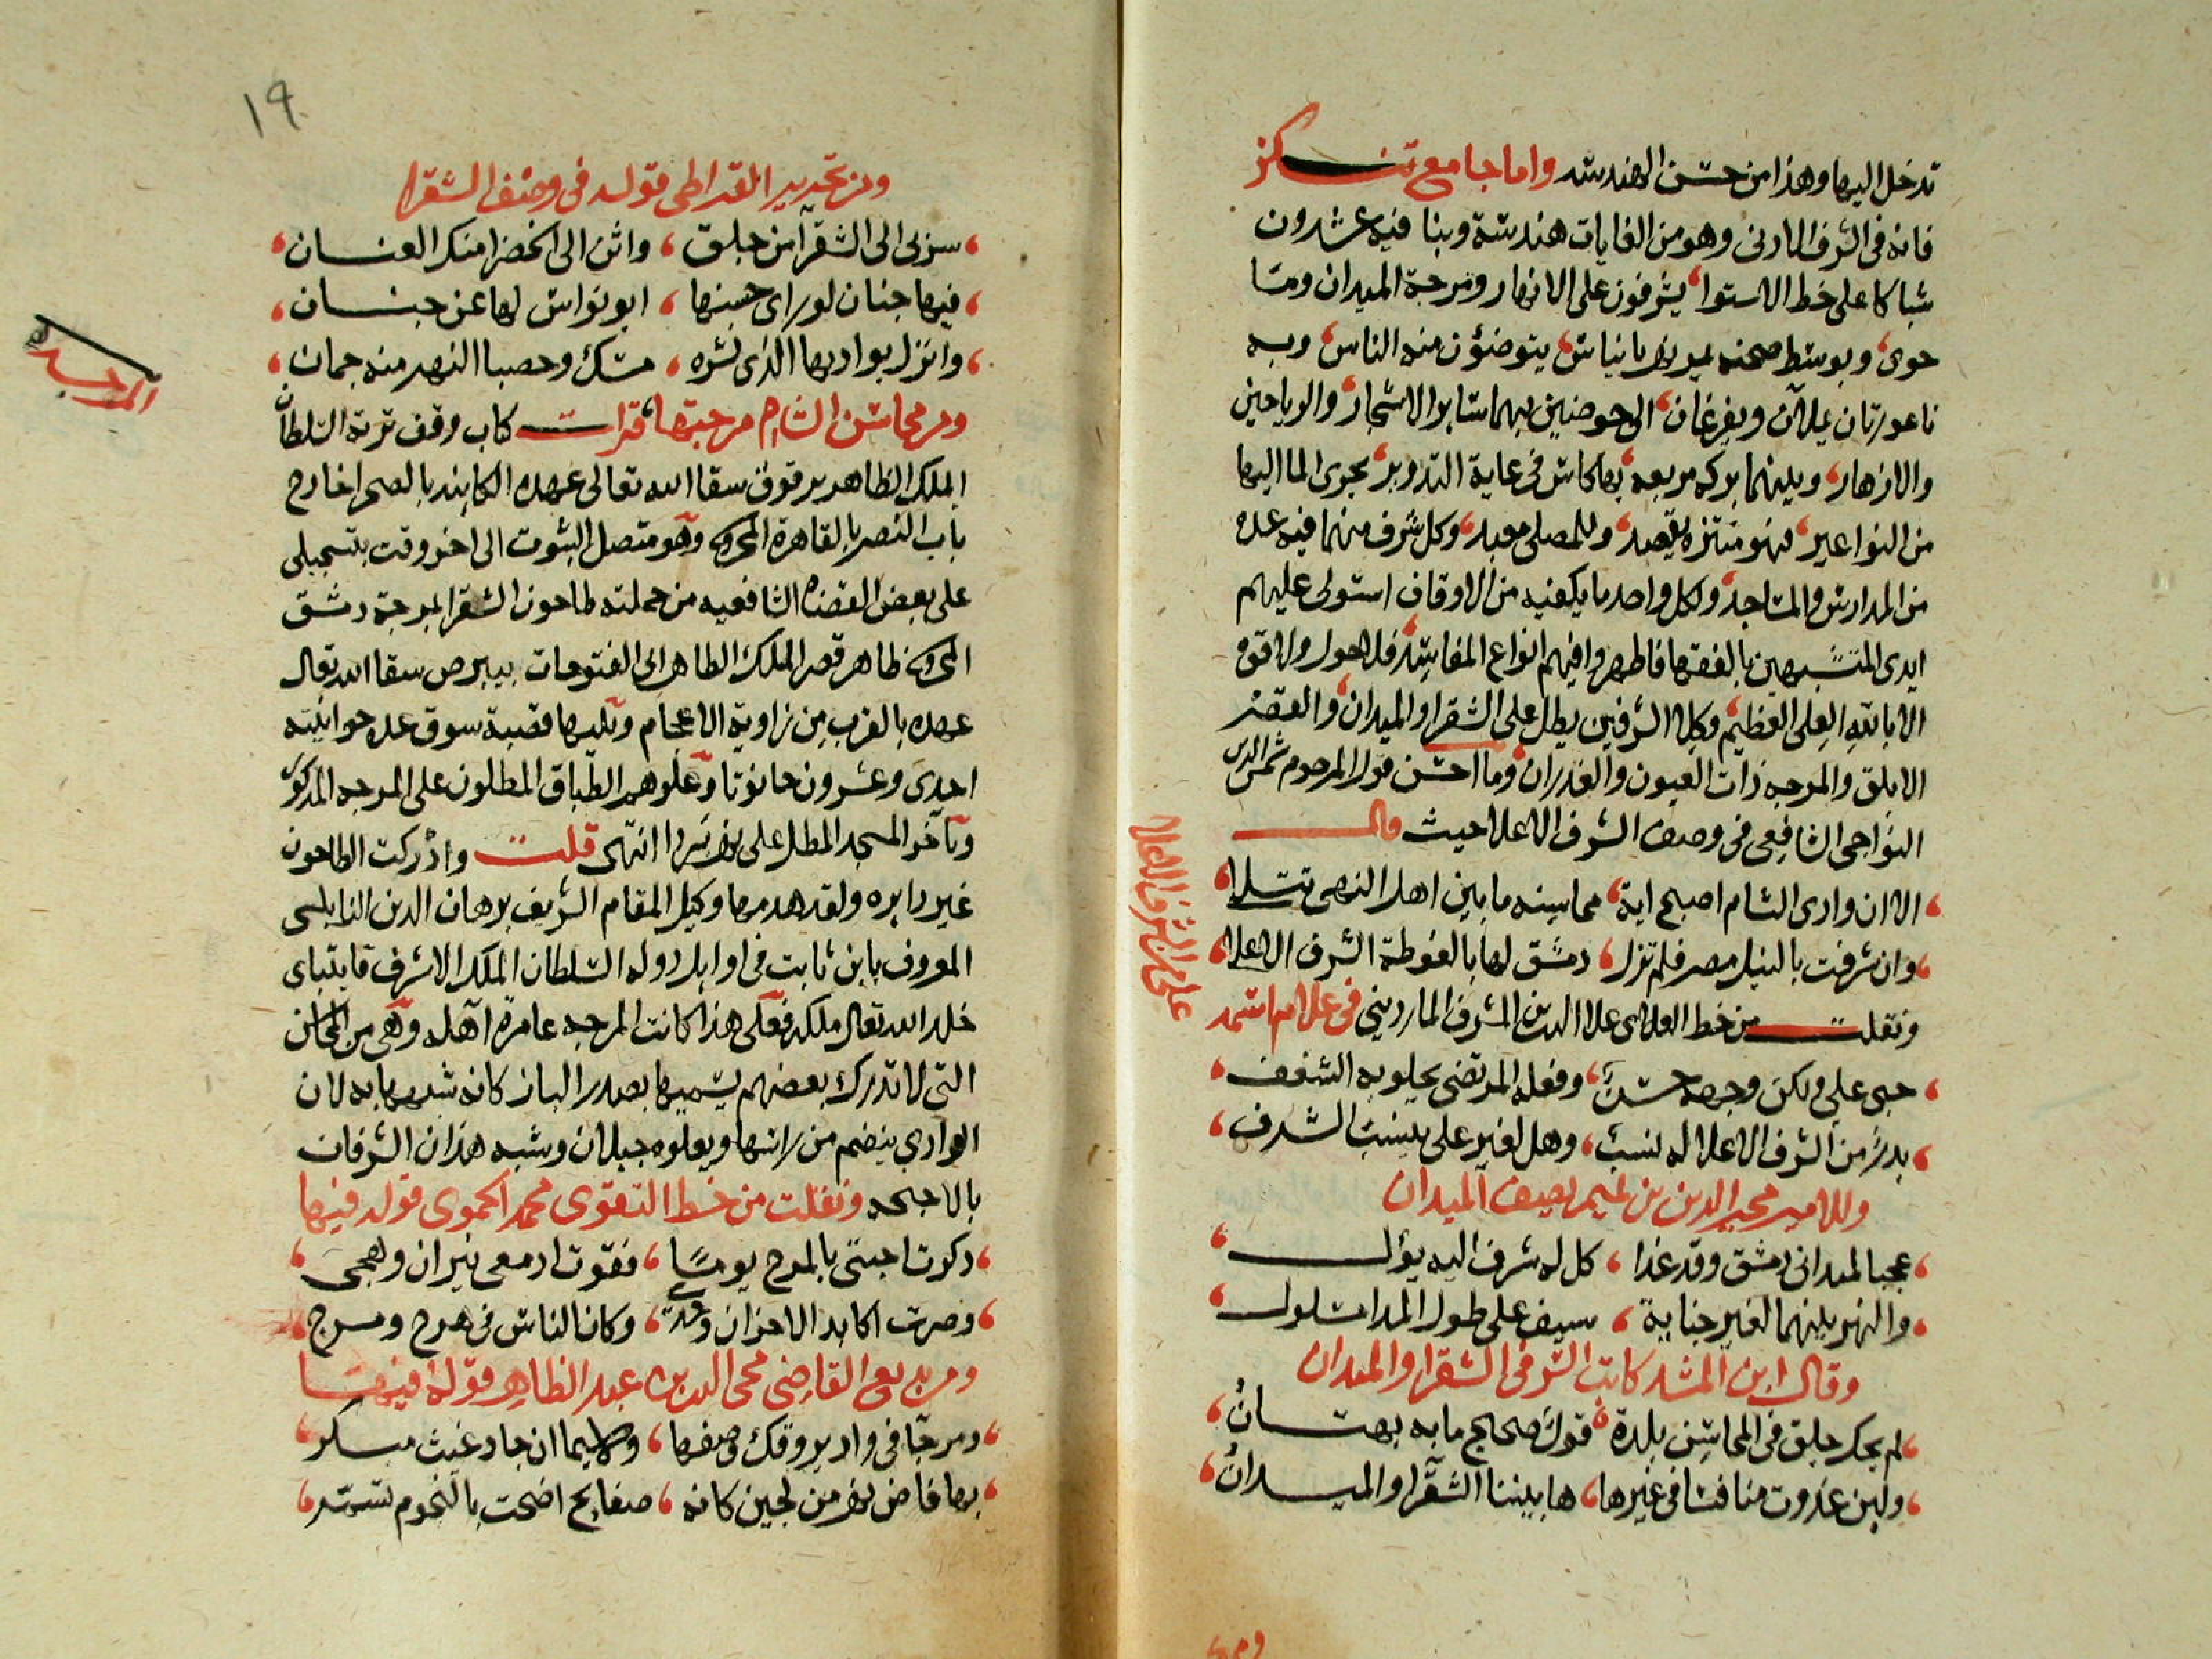 تدخل اليها وهذا من حسن الهندسة واما جامع تنكز
فانه فى الشرف الادنى وهو من الغايات هندسة وبنا فيه عشرون
شباكا على خط الاستوا يشرفون على الانهار ومرجة الميدان وما
حوى وبوسط صحنه يمر نهر بانياس يتوضؤن منه الناس وبه
ناعورتان يملآن ويفرغان الى حوضين بهما ساير الاشجار والرياحين
والازهار وبينهما بركه مربعه بها كاس فى غاية التدوير يجرى الما اليها
من النواعير فهو منتزه يقصد وللمصلى معبد وكل شرف منهما فيه عده
من المدارس والمساجد ولكل واحد ما يكفيه من الاوقاف استولى عليهم
ايدى المتشبهين بالفقها فاظهروا فيهم انواع المفاسد فلا حول ولا قوة
الا بالله العلى العظيم وكلا الشرفين يطل على الشقرا والميدان والقصر
الابلق والمرجه ذات العيون والغدران وما احسن قول المرحوم شمس الدين
النواجى الشافعى فى وصف الشرف الاعلا حيث قال
الا ان وادى الشام اصبح اية محاسنه ما بين اهل النهى تتلا
وان شرفت بالنيل مصر فلم تزل دمشق لها بالغوطة الشرف الاعلا
ونقلت من خط العلاى علا الدين المشرف الماردينى فى غلام اسمه
على من الشرف الاعلا
حبى على ولكن وجهه حسن وفعله المرتضى يحلو به الشغف
بدر من الشرف الاعلا له نسب وهل لغير على ينسب الشرف
وللامير مجير الدين بن تميم يصف الميدان
عجبا لميدانى دمشق وقد غدا كل له شرف اليه يؤل
والنهر بينهما لغير جناية سيف على طول المدا مسلول
وقال ابن المشد كاتب السر فى الشقرا والميدان
لم يحك جلق فى المحاسن بلدة قول صحيح ما به بهتان
ولين غدوت منافسا فى غيرها ها بيننا الشقرا والميدان
١٩
ومن تحرير القيراطى قوله فى وصف الشقرا
سر بى الى الشقرآ من جلق واثن الى الخضرا منك العنان
فيها جنان لو راى حسنها ابو نواس لها عن جنان
وانزل بواديها الذى نشره مسك وحصبا النهر منه جمان
المرجه
ومن محاسن الشام مرجتها قرات كتاب وقف تربة السلطان
الملك الظاهر برقوق سقا الله تعالى عهده الكاينه بالصحرا خارج
باب النصر بالقاهرة المحروسه وهو متصل الثبوت الى اخر وقت بتسجيلى
على بعض القضاة الشافعيه من جملته طاحون الشقرا بمرجة دمشق
المحروسه ظاهر قصر الملك الظاهر ابى الفتوحات بيبرص سقا الله تعالى
عهده بالقرب من زاوية الاعجام ويليها قصبة سوق عدد حوانيته
احدى وعشرون حانوتا وعلوهم الطباق المطلون على المرجه المذكوره
وبآخر المسجد المطل على نهر بردا انتهى قلت وادركت الطاحون
غير دايره ولقد هدمها وكيل المقام الشريف برهان الدين النابلسى
المعروف بابن ثابت فى اوايل دوله السلطان الملك الاشرف قايتباى
خلد الله تعالى ملكه فعلى هذا كانت المرجه عامرة آهله وهى من المحاسن
التى لا تدرك بعضهم يسميها بصدر الباز كانه شبهها به لان
الوادى ينضم من راسها ويعلوه جبلان وشبه هذان الشرفان
بالاجنحه ونقلت من خط التقوى محمد الحموى قوله فيها
ذكرت احبتى بالمرج يوما فقوت ادمعى نيران وهجى
وصرت اكابد الاحزان وحدى وكان الناس فى هرج ومرج
ومن بديع القاضى محى الدين عبد الظاهر قوله فيها
ومرجة فى واد يروقك وصفها ولا سيما ان جاد غيث مبكر
بها فاض نهر من لجين كانه صفايح اضحت بالنجوم تسمر